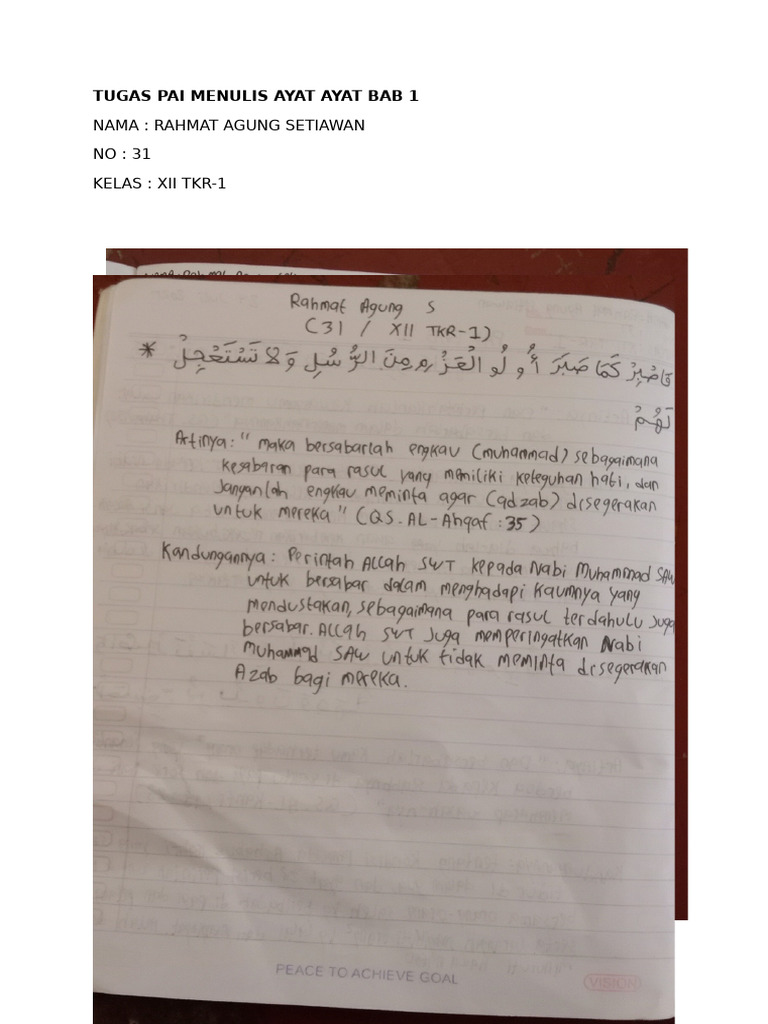 TUGAS PAI MENULIS AYAT AYAT BAB 1
NAMA : RAHMAT AGUNG SETIAWAN
NO : 31
KELAS : XII TKR-1
Rahmat Agung S
(31 / XII TKR-1)
* فَاصْبِرْ كَمَا صَبَرَ أُولُو الْعَزْمِ مِنَ الرُّسُلِ وَلَا تَسْتَعْجِلْ
لَهُمْ
Artinya : " maka bersabarlah engkau (muhammad) sebagaimana
kesabaran para rasul yang memiliki keteguhan hati, dan
Janganlah engkau meminta agar (adzab) disegerakan
untuk mereka " (QS. AL-Ahqaf : 35)
Kandungannya : Perintah Allah SWT kepada Nabi Muhammad SAW
untuk bersabar dalam menghadapi kaumnya yang
mendustakan, sebagaimana para rasul terdahulu juga
bersabar. Allah SWT juga memperingatkan Nabi
muhammad SAW untuk tidak meminta disegerakan
Azab bagi mereka.
PEACE TO ACHIEVE GOAL
VISION